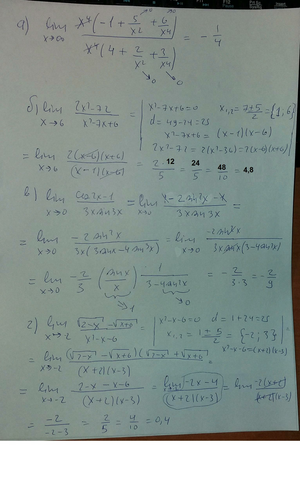 а) lim x→∞ x⁴(-1 + 5/x² + 6/x⁴) / x⁴(4 + 2/x² + 3/x⁴) = -1/4
б) lim x→6 (2x²-72)/(x²-7x+6) = | x²-7x+6=0 x₁,₂ = (7±5)/2 = {1, 6}
d = 49-24=25
x²-7x+6 = (x-1)(x-6)
2x²-72=2(x²-36)=2(x-6)(x+6) |
= lim x→6 2(x-6)(x+6) / (x-1)(x-6) = 2·12/5 = 24/5 = 48/10 = 4,8
в) lim x→0 (cos2x-1)/(3x sin3x) = lim x→0 (1-2sin²x-1)/(3x sin3x) =
= lim x→0 -2sin²x / 3x(3sinx-4sin³x) = lim x→0 -2sin²x / 3x sinx(3-4sin²x)
= lim x→0 -2/3 (sinx/x) 1/(3-4sin²x) = -2/(3·3) = -2/9
г) lim x→-2 (√(2-x) - √(x+6))/(x²-x-6) = | x²-x-6=0 d = 1+24=25
x₁,₂ = (1±5)/2 = {-2; 3}
x²-x-6=(x+2)(x-3) |
= lim x→-2 (√(2-x) - √(x+6))(√(2-x) + √(x+6)) / (x+2)(x-3) =
= lim x→-2 (2-x-x-6)/(x+2)(x-3) = lim (-2x-4)/(x+2)(x-3) = lim -2(x+2)/(x+2)(x-3)
= -2/(-2-3) = 2/5 = 4/10 = 0,4